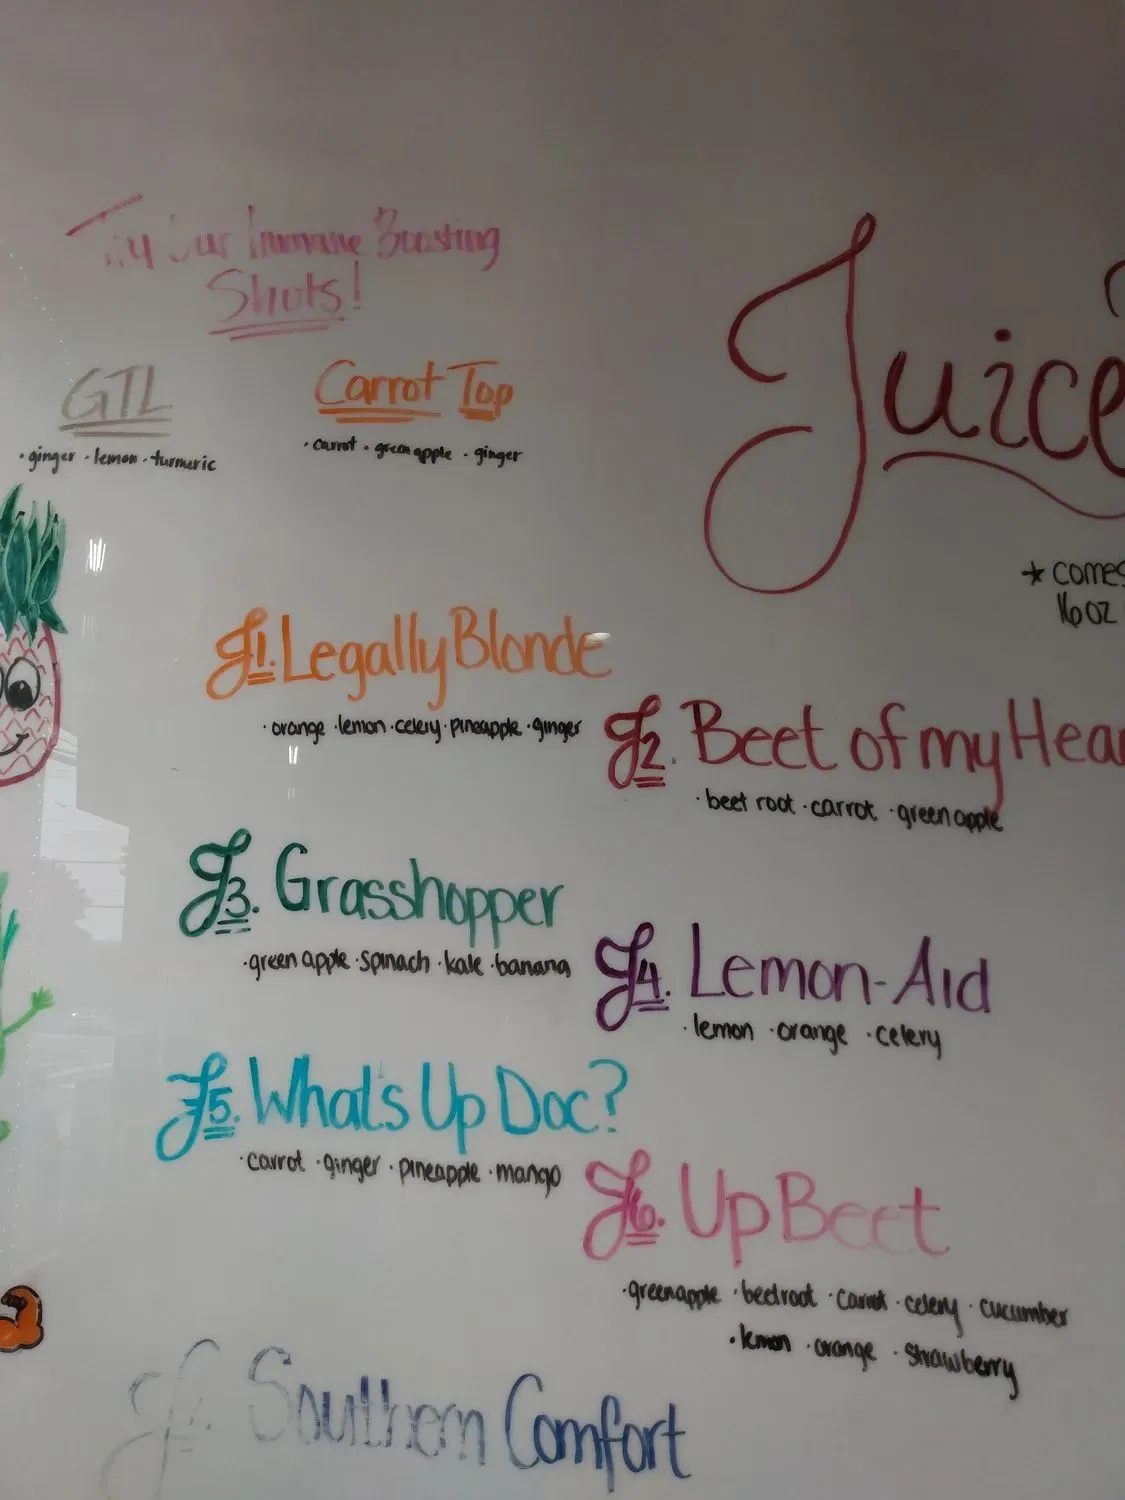 Try Our Immune Boosting
Shots!
GTL
· ginger · lemon · turmeric
Carrot Top
· carrot · green apple · ginger
Juice
* comes
16 oz
J1. Legally Blonde
· orange · lemon · celery · pineapple · ginger
J2. Beet of my Hear
· beet root · carrot · green apple
J3. Grasshopper
· green apple · spinach · kale · banana
J4. Lemon-Aid
· lemon · orange · celery
J5. What's Up Doc?
· carrot · ginger · pineapple · mango
J6. Up Beet
· green apple · beetroot · carrot · celery · cucumber
· lemon · orange · strawberry
J7. Southern Comfort